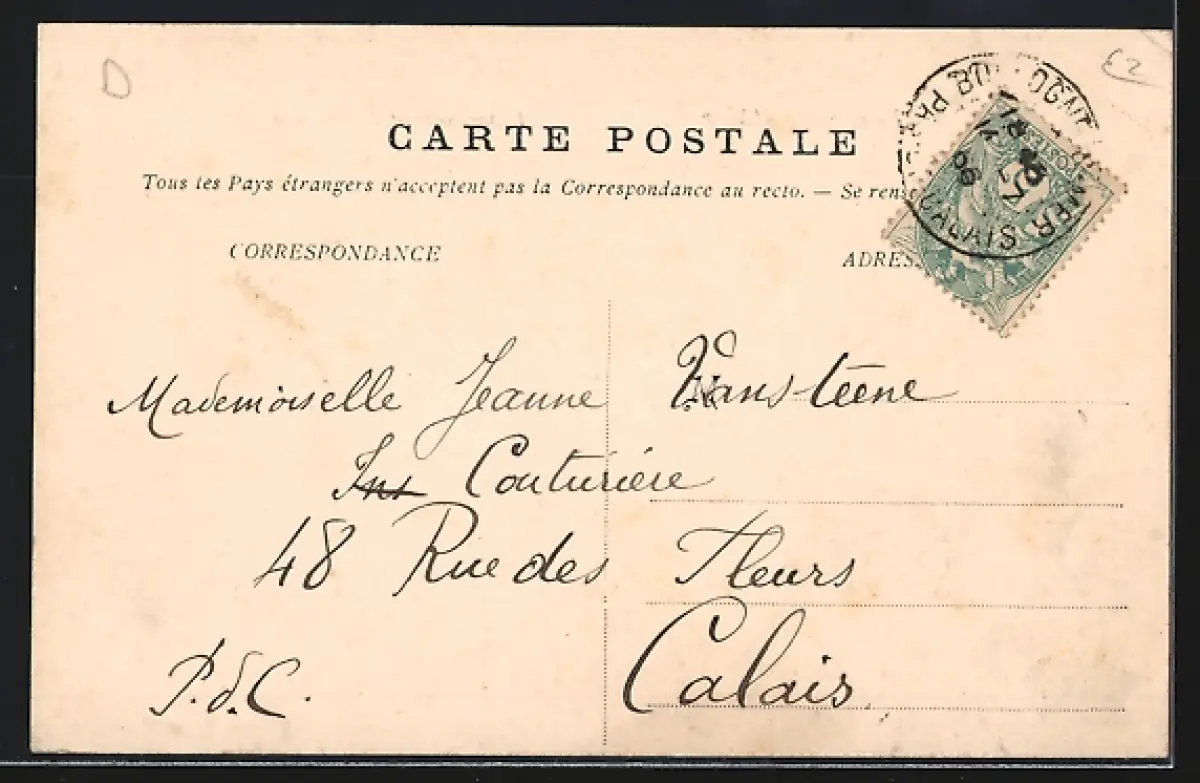 D
CARTE POSTALE
Tous les Pays étrangers n'acceptent pas la Correspondance au recto. — Se rens
CORRESPONDANCE
ADRES
CALAIS
Mademoiselle Jeanne Vansteene
Couturière
48 Rue des Fleurs
P.d.C. Calais